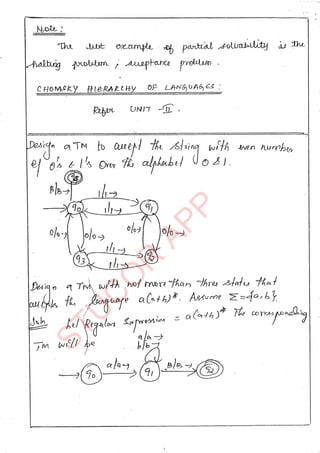 Note :
The best example of partial solvability is the
halting problem , acceptance problem .
CHOMSKY HIERARCHY OF LANGUAGES :
Refer UNIT - II .
Design a TM to accept the string with even number
of 0's & 1's over the alphabet 0 & 1 .
B/B→ 1/1→
q0 1/1→ q1
0/0→ 0/0→ 0/0→ 0/0→
1/1→
q3 1/1→ q2
Design a TM with not more than three states that
accepts the language a(a+b)* . Assume Σ={a,b}.
Soln let Regular Expression = a(a+b)* The corresponding
TM will be
a/a→
b/b→
a/a→ B/B→
q0 q1 q2
STUCOR APP